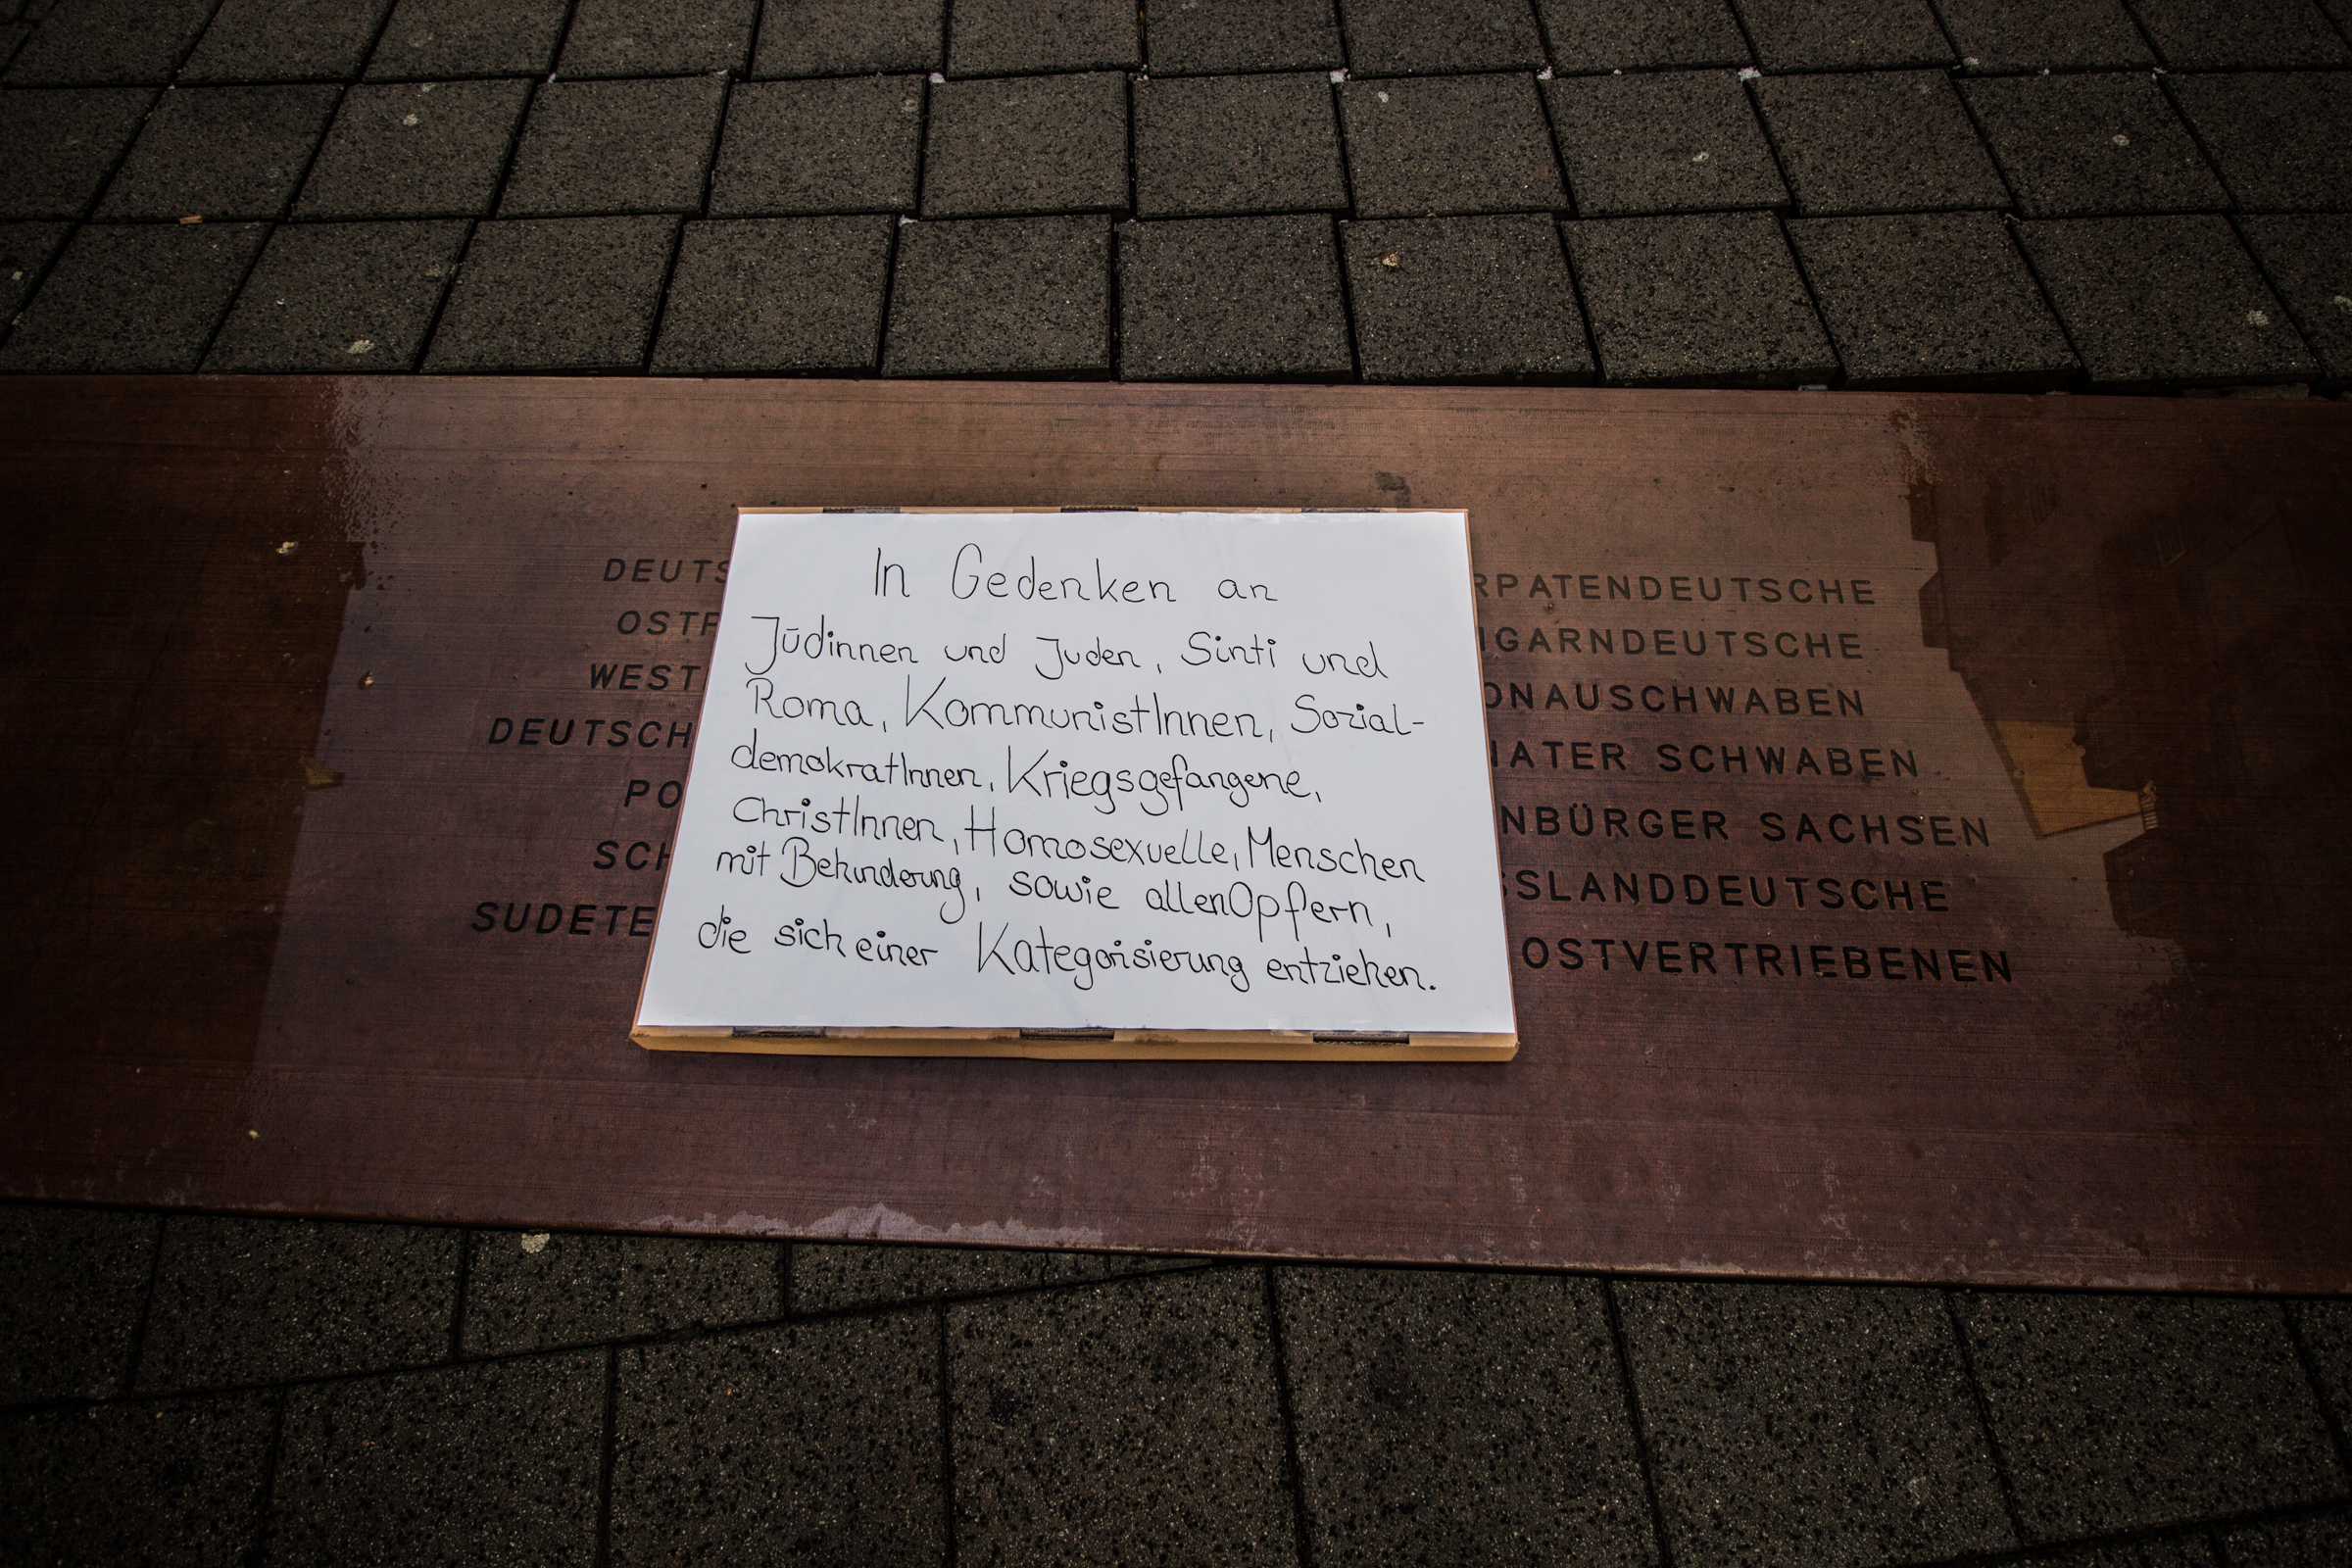 In Gedenken an
Jüdinnen und Juden, Sinti und
Roma, KommunistInnen, Sozial-
demokratInnen, Kriegsgefangene,
ChristInnen, Homosexuelle, Menschen
mit Behinderung, sowie allen Opfern,
die sich einer Kategorisierung entziehen.
DEUTS
OSTP
WEST
DEUTSCH
PO
SCH
SUDETE
RPATENDEUTSCHE
GARNDEUTSCHE
ONAUSCHWABEN
ATER SCHWABEN
NBÜRGER SACHSEN
SSLANDDEUTSCHE
OSTVERTRIEBENEN